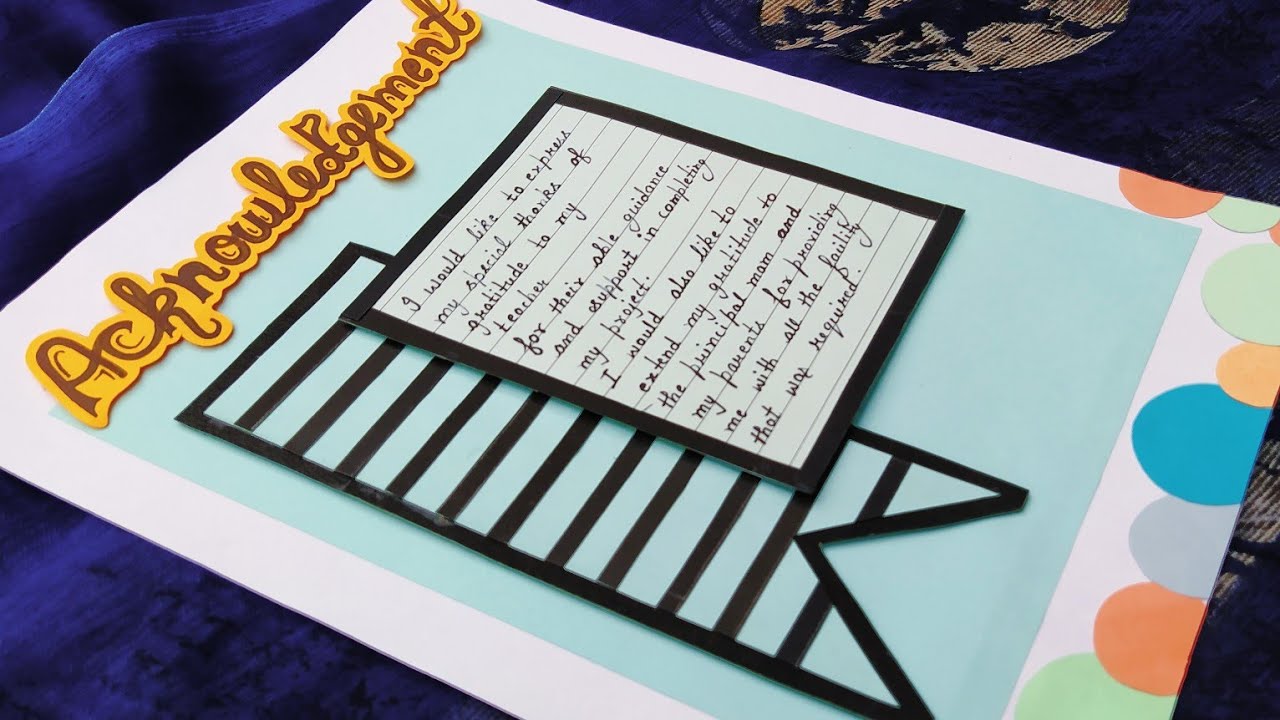 Acknowledgement
I would like to express
my special thanks of
gratitude to my
teacher
for their able guidance
and support in completing
my project.
I would also like to
extend my gratitude to
the prinicipal mam and
my parents for providing
me with all the faility
that was required.